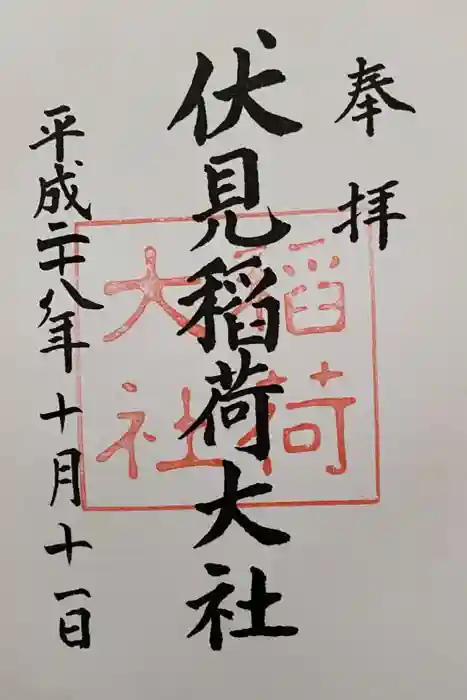 奉拝
伏見稲荷大社
稲荷
大社
平成二十八年十月十一日